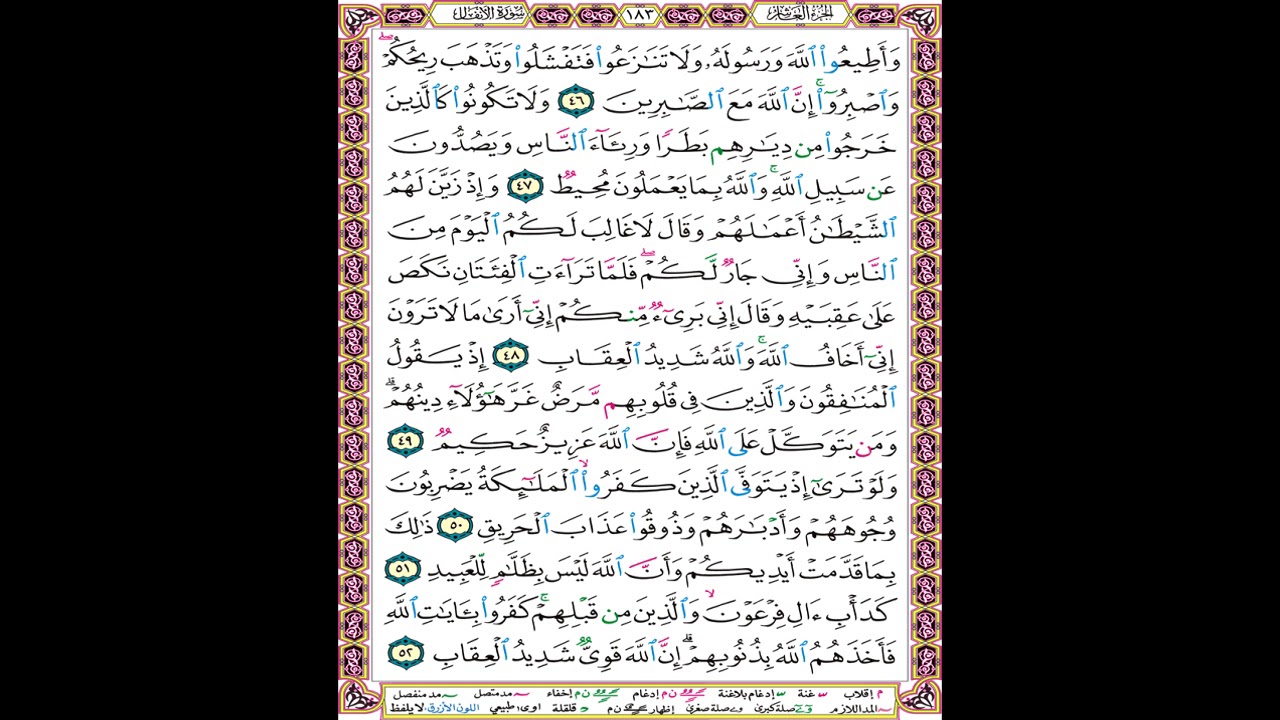 الجزء العاشر ١٨٣ سورة الأنفال
وَأَطِيعُوا۟ ٱللَّهَ وَرَسُولَهُۥ وَلَا تَنَٰزَعُوا۟ فَتَفْشَلُوا۟ وَتَذْهَبَ رِيحُكُمْۖ
وَٱصْبِرُوٓا۟ۚ إِنَّ ٱللَّهَ مَعَ ٱلصَّٰبِرِينَ ٤٦ وَلَا تَكُونُوا۟ كَٱلَّذِينَ
خَرَجُوا۟ مِن دِيَٰرِهِم بَطَرًا وَرِئَآءَ ٱلنَّاسِ وَيَصُدُّونَ
عَن سَبِيلِ ٱللَّهِۚ وَٱللَّهُ بِمَا يَعْمَلُونَ مُحِيطٌ ٤٧ وَإِذْ زَيَّنَ لَهُمُ
ٱلشَّيْطَٰنُ أَعْمَٰلَهُمْ وَقَالَ لَا غَالِبَ لَكُمُ ٱلْيَوْمَ مِنَ
ٱلنَّاسِ وَإِنِّى جَارٌ لَّكُمْۖ فَلَمَّا تَرَآءَتِ ٱلْفِئَتَانِ نَكَصَ
عَلَىٰ عَقِبَيْهِ وَقَالَ إِنِّى بَرِىٓءٌ مِّنكُمْ إِنِّىٓ أَرَىٰ مَا لَا تَرَوْنَ
إِنِّىٓ أَخَافُ ٱللَّهَۚ وَٱللَّهُ شَدِيدُ ٱلْعِقَابِ ٤٨ إِذْ يَقُولُ
ٱلْمُنَٰفِقُونَ وَٱلَّذِينَ فِى قُلُوبِهِم مَّرَضٌ غَرَّ هَٰٓؤُلَآءِ دِينُهُمْۗ
وَمَن يَتَوَكَّلْ عَلَى ٱللَّهِ فَإِنَّ ٱللَّهَ عَزِيزٌ حَكِيمٌ ٤٩
وَلَوْ تَرَىٰٓ إِذْ يَتَوَفَّى ٱلَّذِينَ كَفَرُوا۟ۙ ٱلْمَلَٰٓئِكَةُ يَضْرِبُونَ
وُجُوهَهُمْ وَأَدْبَٰرَهُمْ وَذُوقُوا۟ عَذَابَ ٱلْحَرِيقِ ٥٠ ذَٰلِكَ
بِمَا قَدَّمَتْ أَيْدِيكُمْ وَأَنَّ ٱللَّهَ لَيْسَ بِظَلَّٰمٍ لِّلْعَبِيدِ ٥١
كَدَأْبِ ءَالِ فِرْعَوْنَۙ وَٱلَّذِينَ مِن قَبْلِهِمْۚ كَفَرُوا۟ بِـَٔايَٰتِ ٱللَّهِ
فَأَخَذَهُمُ ٱللَّهُ بِذُنُوبِهِمْۗ إِنَّ ٱللَّهَ قَوِىٌّ شَدِيدُ ٱلْعِقَابِ ٥٢
م إقلاب غنة إدغام بلاغنة م إدغام ن م إخفاء مد متصل مد منفصل
المد اللازم صلة كبرى صلة صغرى إظهار ن م قلقلة طبيعي اللون الأزرق لا يلفظ